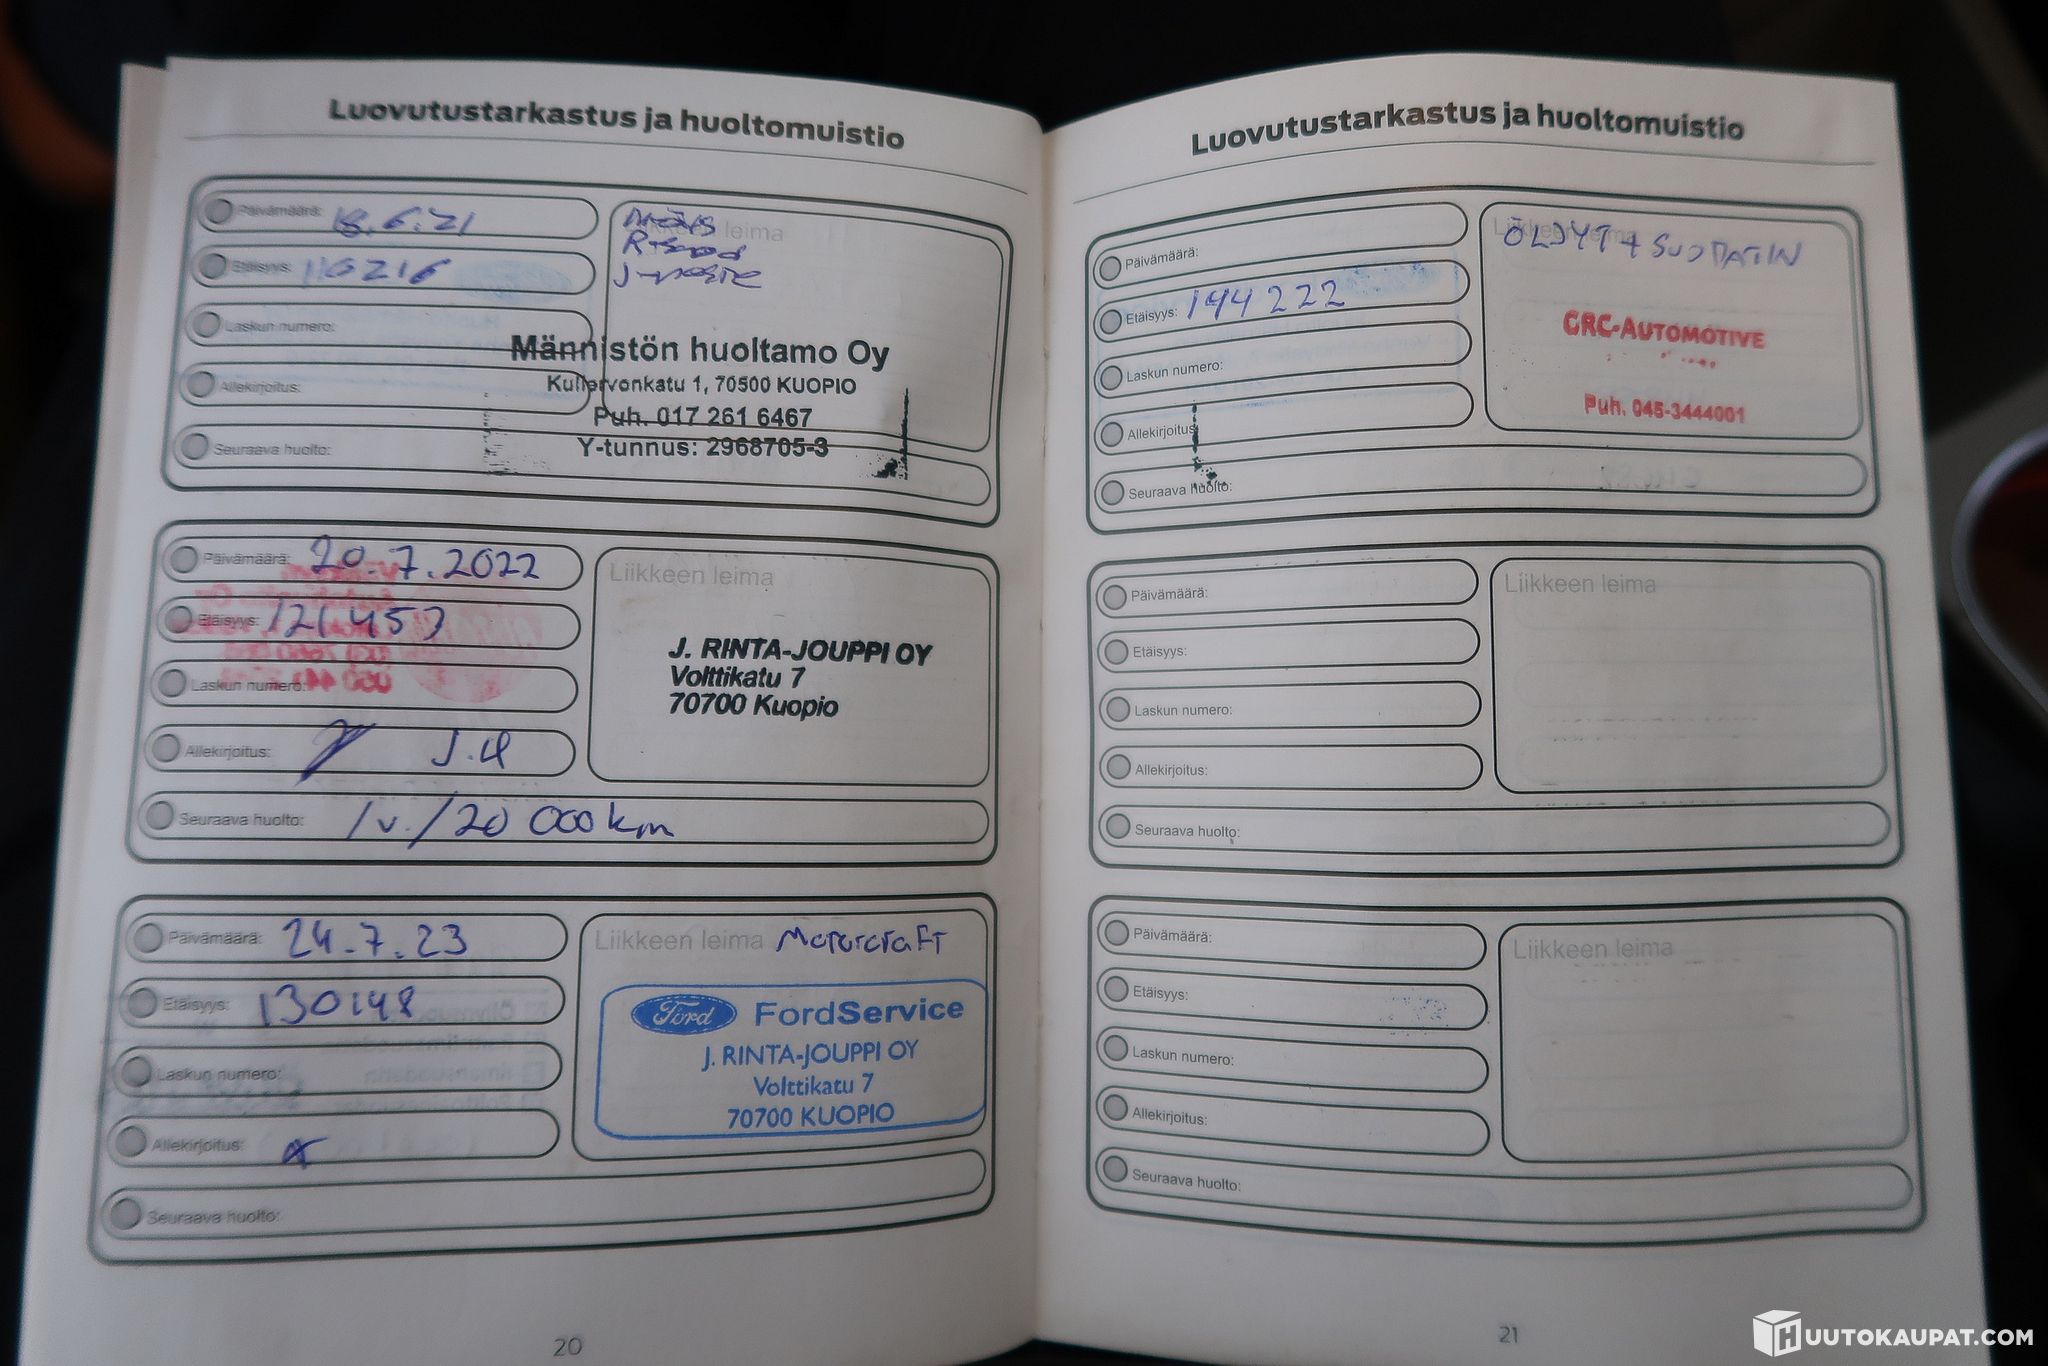 Luovutustarkastus ja huoltomuistio
Päivämäärä: 18.6.21
Etäisyys: 116216
Laskun numero:
Allekirjoitus:
Seuraava huolto:
Liikkeen leima
J-neste
Männistön huoltamo Oy
Kullervonkatu 1, 70500 KUOPIO
Puh. 017 261 6467
Y-tunnus: 2968705-3
Päivämäärä: 20.7.2022
Etäisyys: 121453
Laskun numero:
Allekirjoitus: J.H
Seuraava huolto: 1v./20 000km
Liikkeen leima
J. RINTA-JOUPPI OY
Volttikatu 7
70700 Kuopio
Päivämäärä: 24.7.23
Etäisyys: 130148
Laskun numero:
Allekirjoitus:
Seuraava huolto:
Liikkeen leima Motorcraft
Ford FordService
J. RINTA-JOUPPI OY
Volttikatu 7
70700 KUOPIO
20
Luovutustarkastus ja huoltomuistio
Päivämäärä:
Etäisyys: 144222
Laskun numero:
Allekirjoitus:
Seuraava huolto:
Liikkeen leima
ÖLJYT + SUODATIN
CRC-AUTOMOTIVE
Puh. 045-3444001
Päivämäärä:
Etäisyys:
Laskun numero:
Allekirjoitus:
Seuraava huolto:
Liikkeen leima
Päivämäärä:
Etäisyys:
Laskun numero:
Allekirjoitus:
Seuraava huolto:
Liikkeen leima
21
HUUTOKAUPAT.COM